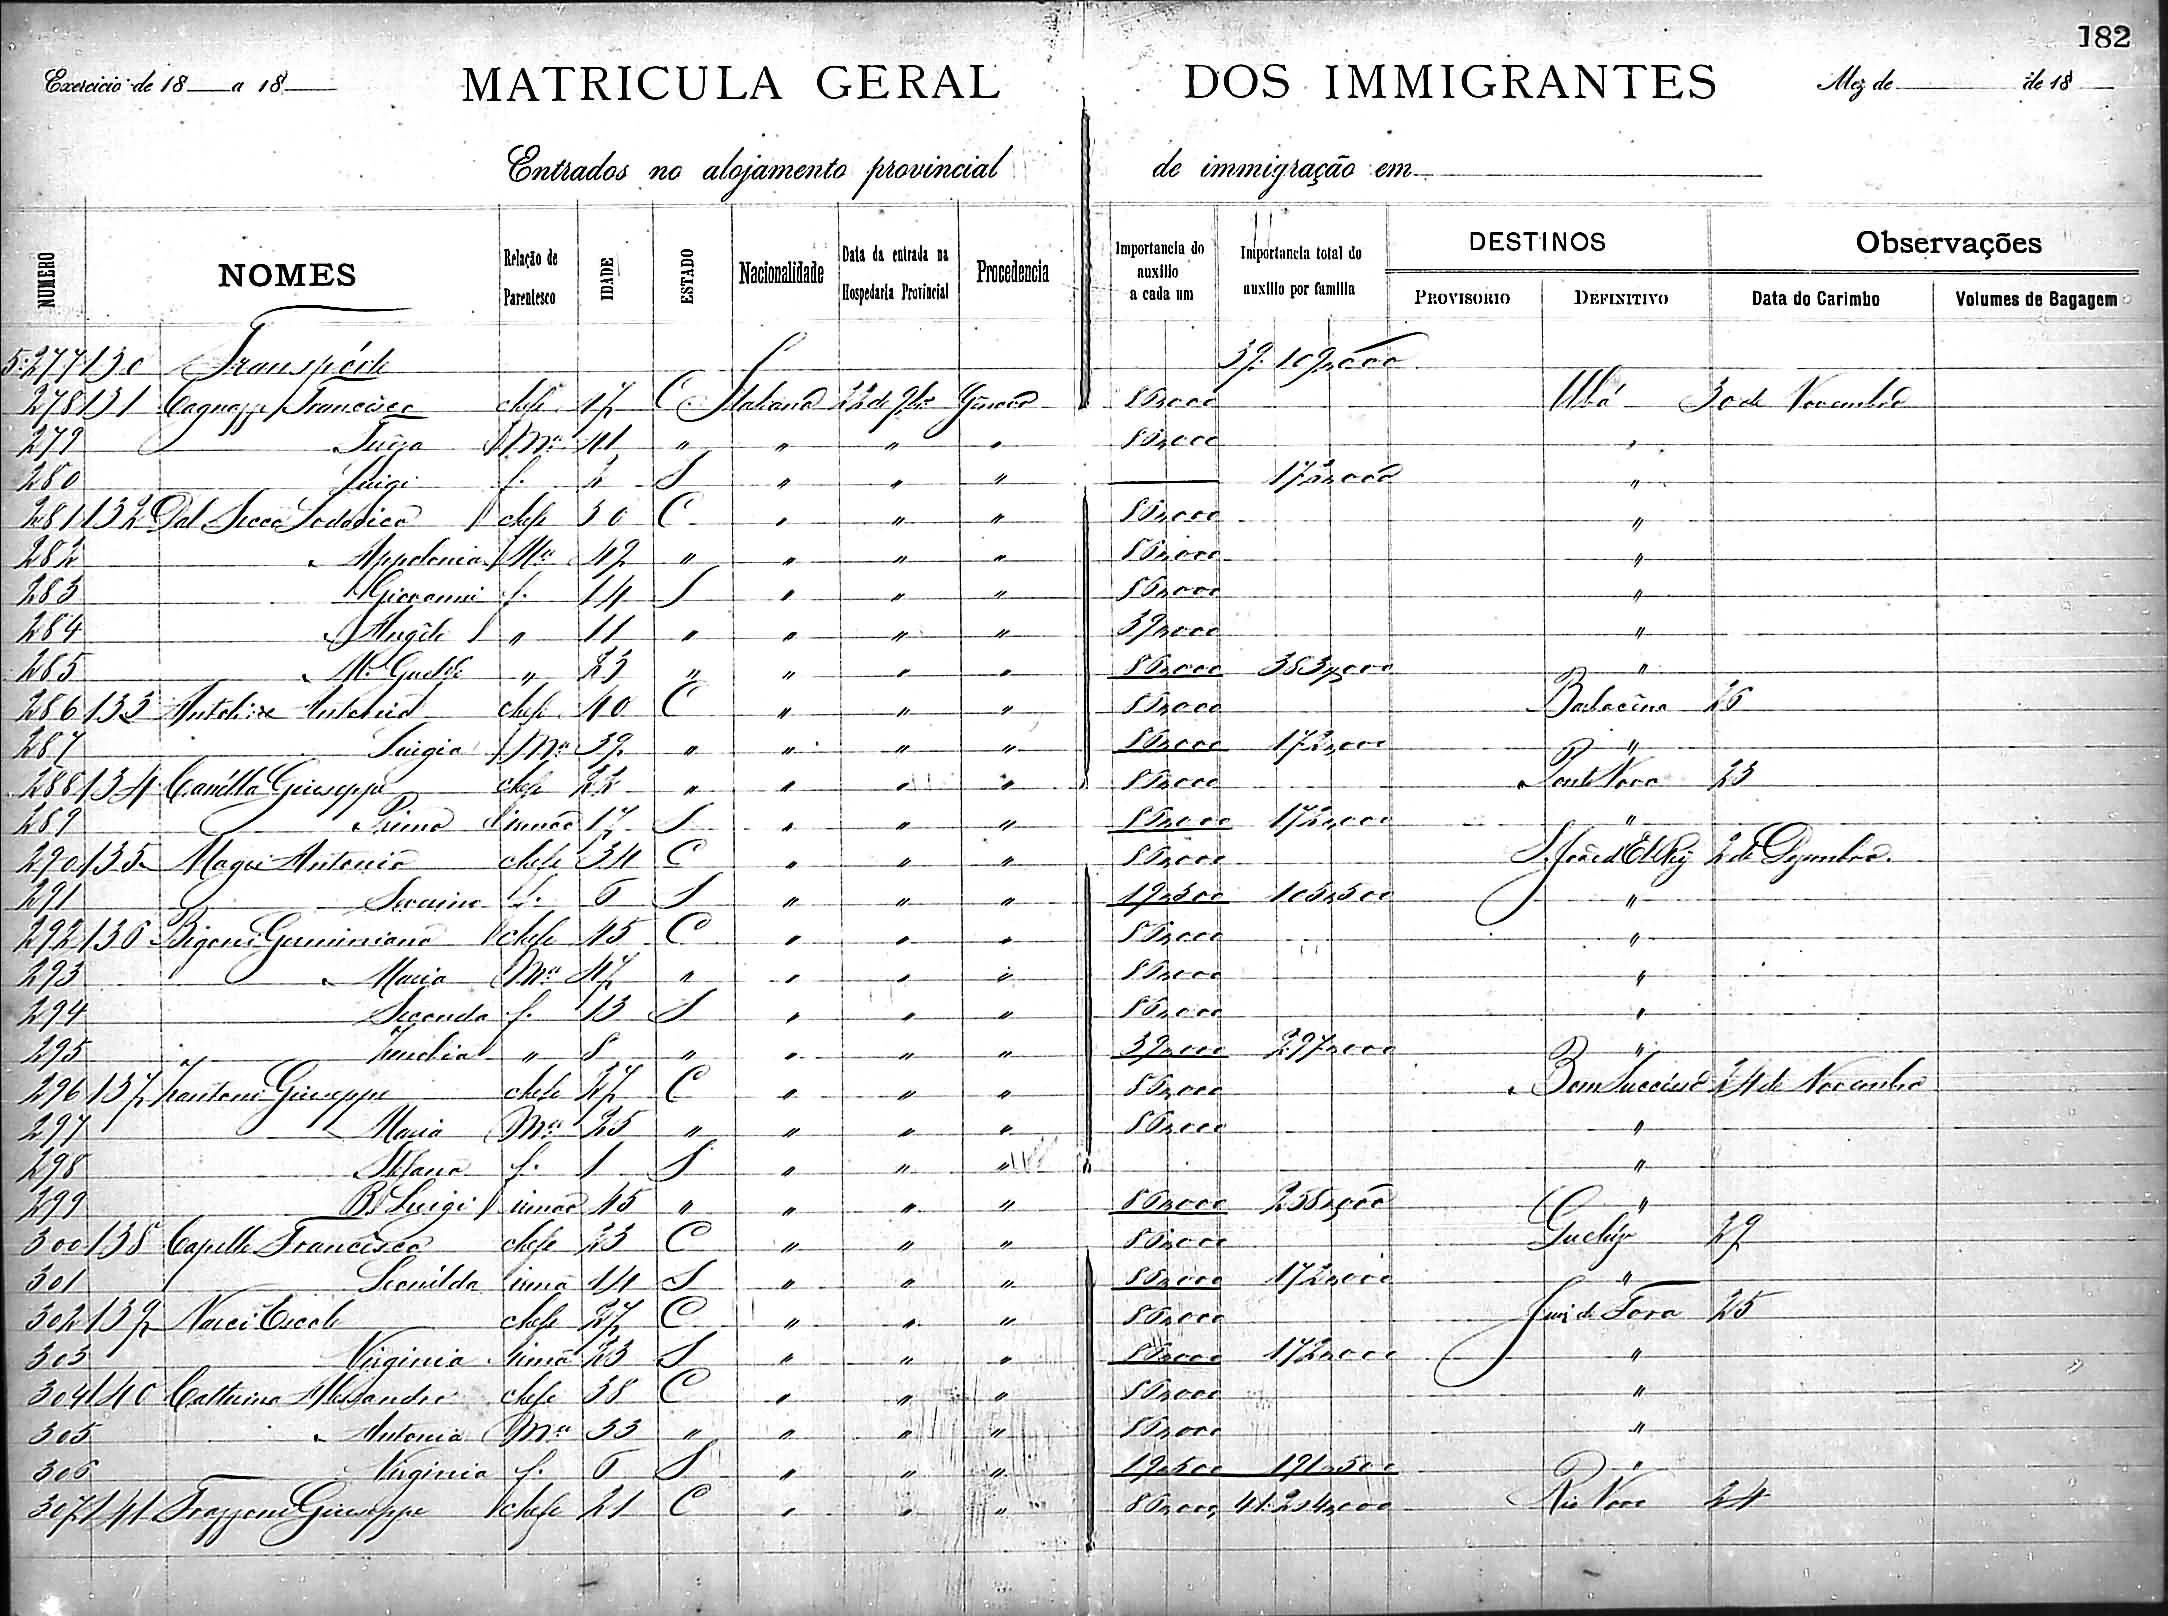 182
Exercicio de 18 a 18 MATRICULA GERAL DOS IMMIGRANTES Mez de de 18
Entrados no alojamento provincial de immigração em
NUMERO NOMES Relação de Parentesco IDADE ESTADO Nacionalidade Data da entrada na Hospedaria Provincial Procedencia Importancia do auxilio a cada um Importancia total do auxilio por familia DESTINOS PROVISORIO DEFINITIVO Observações Data do Carimbo Volumes de Bagagem
5:277 130 Transpórte 39:109,000
278 131 Francisco chefe 47 C Italiana 22 de 9bro Genova 86,000 Ubá 30 de Novembro
279 Mer 41 " " " " 86,000 "
280 Luigi f. 2 S " " " 172,000 "
281 132 Dal Secco Lodovico chefe 50 C " " " 86,000 "
282 " Appolonia Mer 49 " " " " 86,000 "
283 Giovanni f. 14 S " " " 86,000 "
284 " " 11 " " " " 39,000 "
285 " " 23 " " " " 86,000 383,000 "
286 133 Antonio chefe 40 C " " " 86,000 Barbacena 26
287 Luigia Mer 39 " " " " 86,000 172,000 "
288 134 Giuseppe chefe 22 " " " " 86,000 Ponte Nova 23
289 Primo irmão 17 S " " " 86,000 172,000 "
290 135 Magri Antonio chefe 34 C " " " 86,000 S. João d'El Rey 2 de Dezembro
291 f. 6 S " " " 19,500 105,500 "
292 136 Bigoni Geminiano chefe 45 C " " " 86,000 "
293 " Maria Mer 47 " " " " 86,000 "
294 Seconda f. 13 S " " " 86,000 "
295 " " 8 " " " " 39,000 297,000 "
296 137 Giuseppe chefe 27 C " " " 86,000 Bom Successo 24 de Novembro
297 Maria Mer 25 " " " " 86,000 "
298 f. 1 S " " " "
299 Luigi irmão 45 " " " " 86,000 258,000 "
300 138 Capelli Francisco chefe 23 C " " " 86,000 Queluz 29
301 Leonilda irmã 14 S " " " 86,000 172,000 "
302 139 chefe 27 C " " " 86,000 Juiz de Fora 25
303 Virginia irmã 23 S " " " 86,000 172,000 "
304 140 Alessandro chefe 38 C " " " 86,000 "
305 " Antonia Mer 33 " " " " 86,000 "
306 Virginia f. 6 S " " " 19,500 191,500 "
307 141 Frazzoni Giuseppe chefe 21 C " " " 86,000 41:204,000 Rio Novo 24